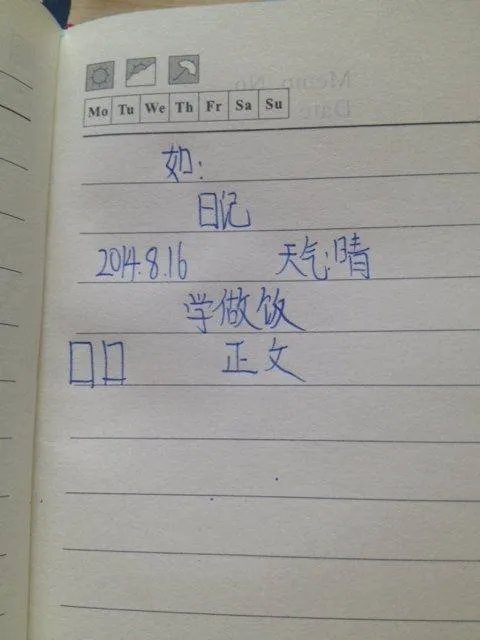 Mo Tu We Th Fr Sa Su
如:
日记
2014.8.16 天气:晴
学做饭
口口 正文